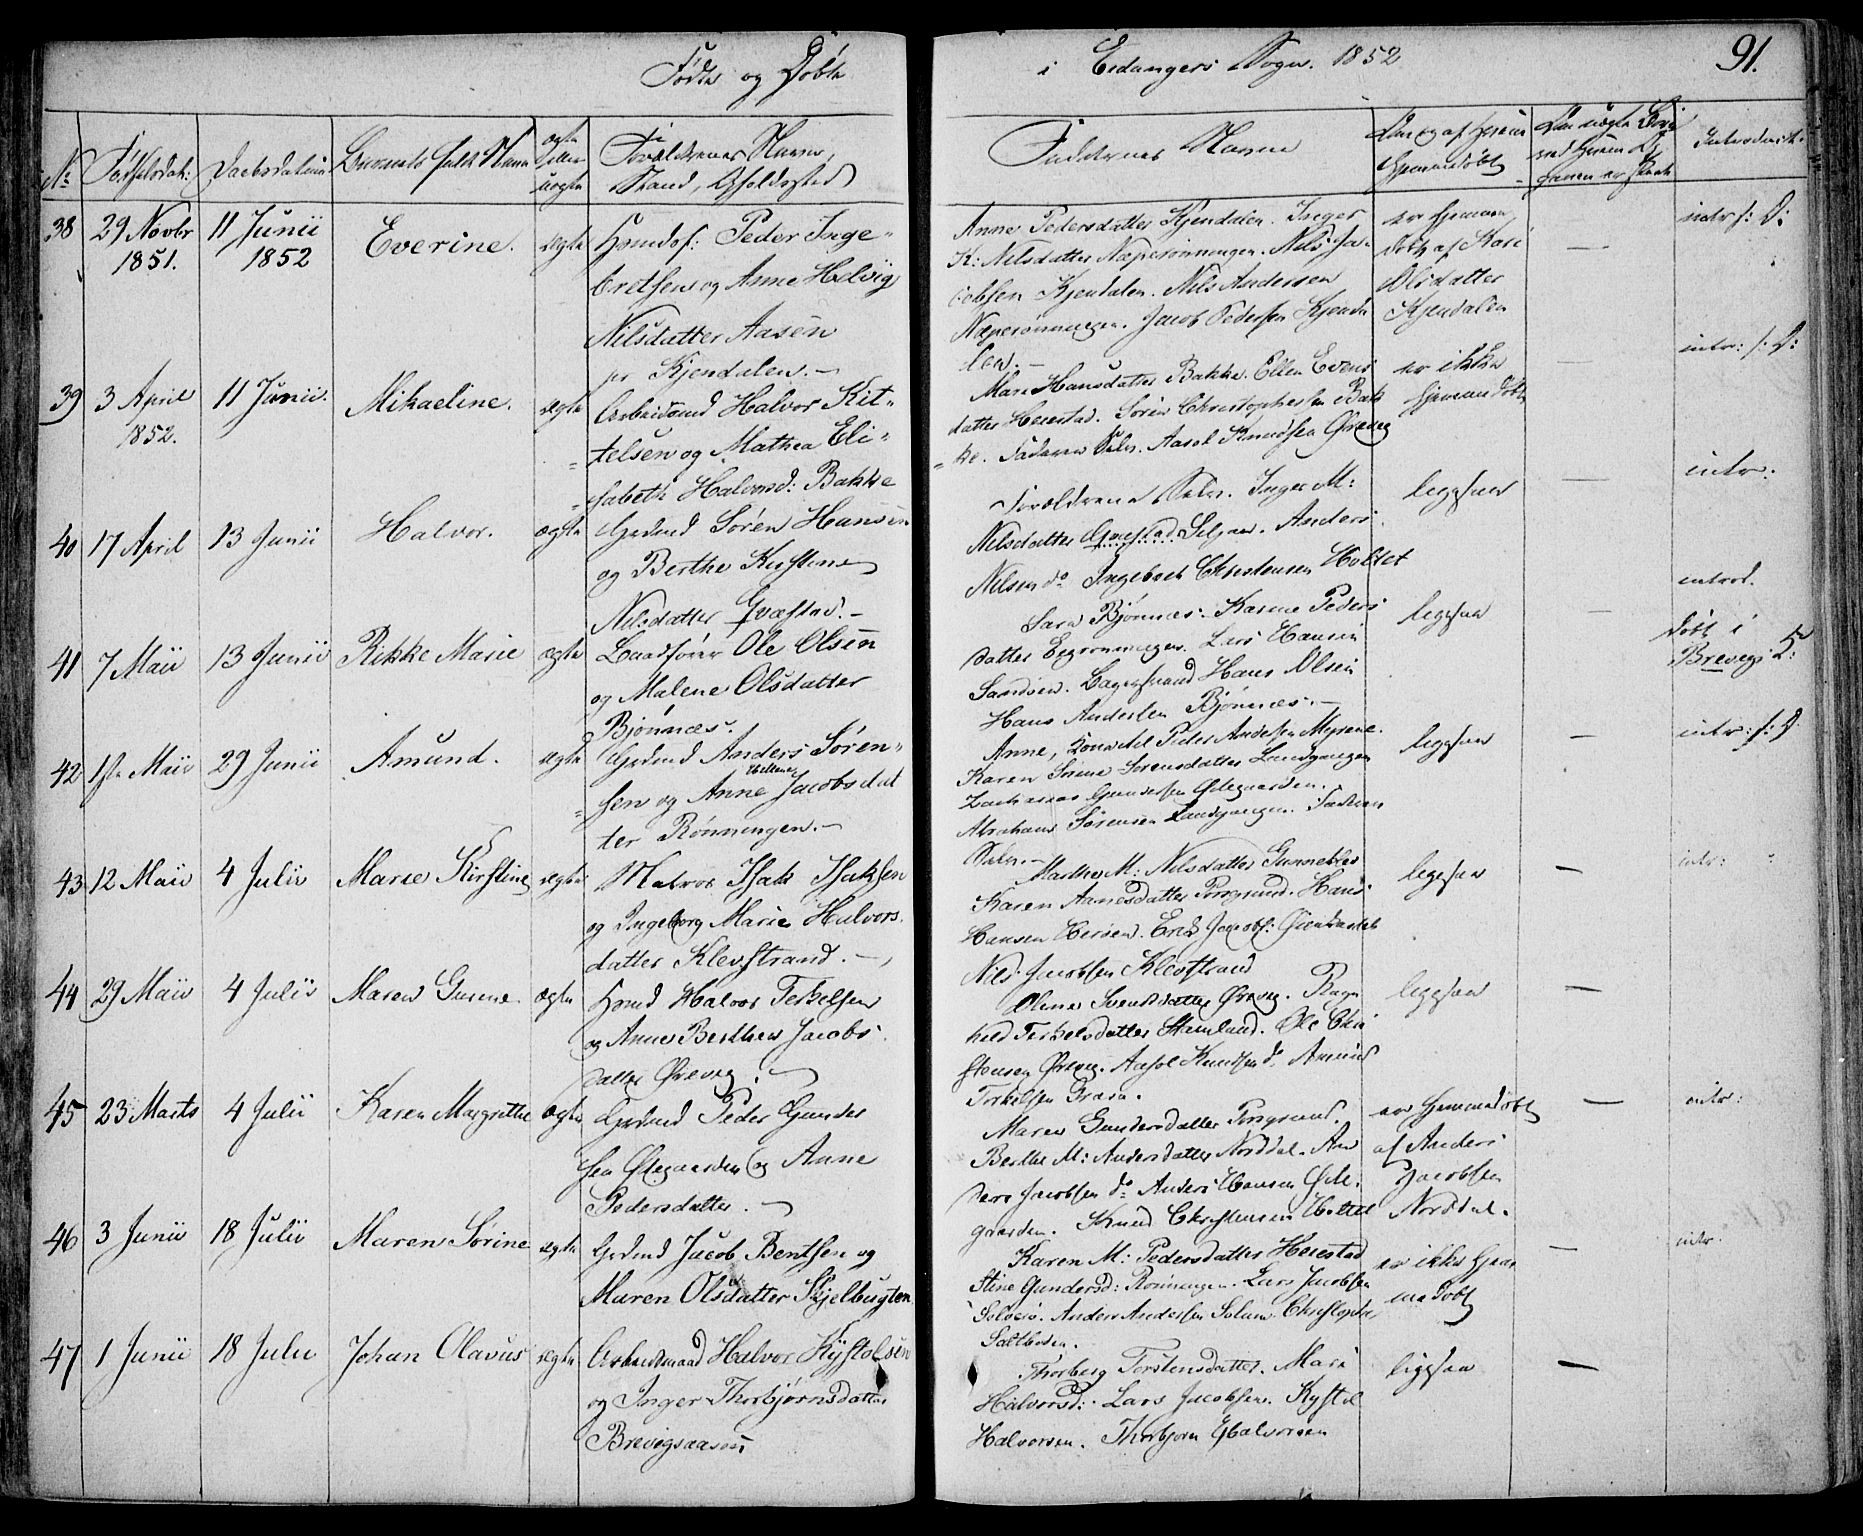 Fødte og Døbte
i Eidangers Sogn. 1852
91.
No
Fødselsdat:
Daabsdatum
Barnets fulde Navn
ægte eller uægte
Forældrenes Navne,
Stand, Opholdssted
Faddernes Navne
Introducit.
38
29 Novbr
1851.
11 Junii
1852
Everine.
ægte
Huusdf: Peder Inge-
bretsen og Anne Helvig
Nilsdatter Aasen
pr Kjendalen.-
Anne Pedersdatter Kjendalen. Inger
K: Nilsdatter Næperønningen. Nils Ja-
cobsen Kjendalen. Nils Andersen
Næperønningen. Jacob Pedersen Kjenda
len.-
er hjemme
døbt af Kari
Olsdatter
Kjendalen
intr: f: D:
39
3 April
1852.
11 Junii.
Mikaeline.
ægte
Arbeidsmd Halvor Kit-
telsen og Mathea Eli-
sabeth Halvorsd: Bakke
Mari Hansdatter Bakke. Ellen Evens
datter Heiestad. Søren Christophersen Bak
ke. Faderen Selv. Aasol Knudsen Ørevig
er ikke
hjemmedøbt
intr: f: D:
40
17 April
13 Junii
Halvor.
ægte
Grdmd Søren Hansen
og Berthe Kirstine
Nilsdatter Gvæstad.-
Forældrene Selv. Inger M:
Nilsdatter Gvæstad Seljan. Anders
Nilsen do Ingebret Christensen Holtet
ligesaa
intr:
41
7 Maii
13 Junii
Rikke Marie
ægte
Baadfører Ole Olsen
og Malene Olsdatter
Bjønnæs.
Sara Bjønnæs. Karine Peders
datter Eegrønningen. Lars Hansen
Sandøen. Hans Olsen
Hans Andersen Bjønnæs.-
ligesaa
introd.
døbt i
Brevig
42
1ste Maii
29 Junii
Amund.
ægte
Grdmd Anders Søren-
sen og Anne Jacobsdat
ter Rønningen.-
Anne, Kone til Peder Andersen Myrene.
Karen Sørensdatter Landgangen
Zacharias Gundersen Ødegaarden.
Abraham Sørensen Landgangen. Faderen
Selv.-
ligesaa
intr: f: D
43
12 Maii
4 Julii
Marie Kirstine
ægte
Matros Isak Isaksen
og Ingeborg Marie Halvors
datter Klevstrand.-
Marthe M: Nilsdatter Gunneklev
Karen Aanesdatter Porsgrund. Hans
Hansen Herøen. Erik Jacobs:
Nils Jacobsen Klevstrand
ligesaa
intr:
44
29 Maii
4 Julii
Maren Gurine.
ægte
Huusmd Halvor Terkelsen
og Anne Berthea Jacobs
datter Ørevig.-
Oline Svendsdatter Ørevig. Ragn
hild Terkelsdatter Stamland. Ole Chri
stensen Ørevig. Aasol Knudsen do. Amund
Terkelsen Grava.
ligesaa
45
23 Marts
4 Julii
Karen Margrethe
ægte
Grdmd Peder Gunder
sen Ødegaarden og Anne
Pedersdatter.-
Maren Gundersdatter Porsgrund.
Berthe M: Andersdatter Norddal. An
ders Jacobsen do. Anders Hansen Øde-
gaarden. Knud Christensen Holtet
er hjemmedøbt
af Anders
Jacobsen
Norddal.
intr:
46
3 Junii
18 Julii
Maren Sørine
ægte
Grdmd Jacob Bentsen og
Maren Olsdatter Skjelbugten
Karen M: Pedersdatter Heiestad
Stine Gundersd: Rønningen. Lars Jacobsen
Anders Andersen Solum. Christopher
Saltboden.
er ikke hjem
medøbt
intr.
47
1 Junii
18 Julii
Johan Olavus
ægte
Arbeidsmand Halvor Kystolsen
og Inger Thorbjørnsdatter
Brevigsaasen
Thorberg Torstensdatter. Mari
Halvorsd: Lars Jacobsen. Kystol
Halvorsen. Thorbjørn Halvorsen
ligesaa